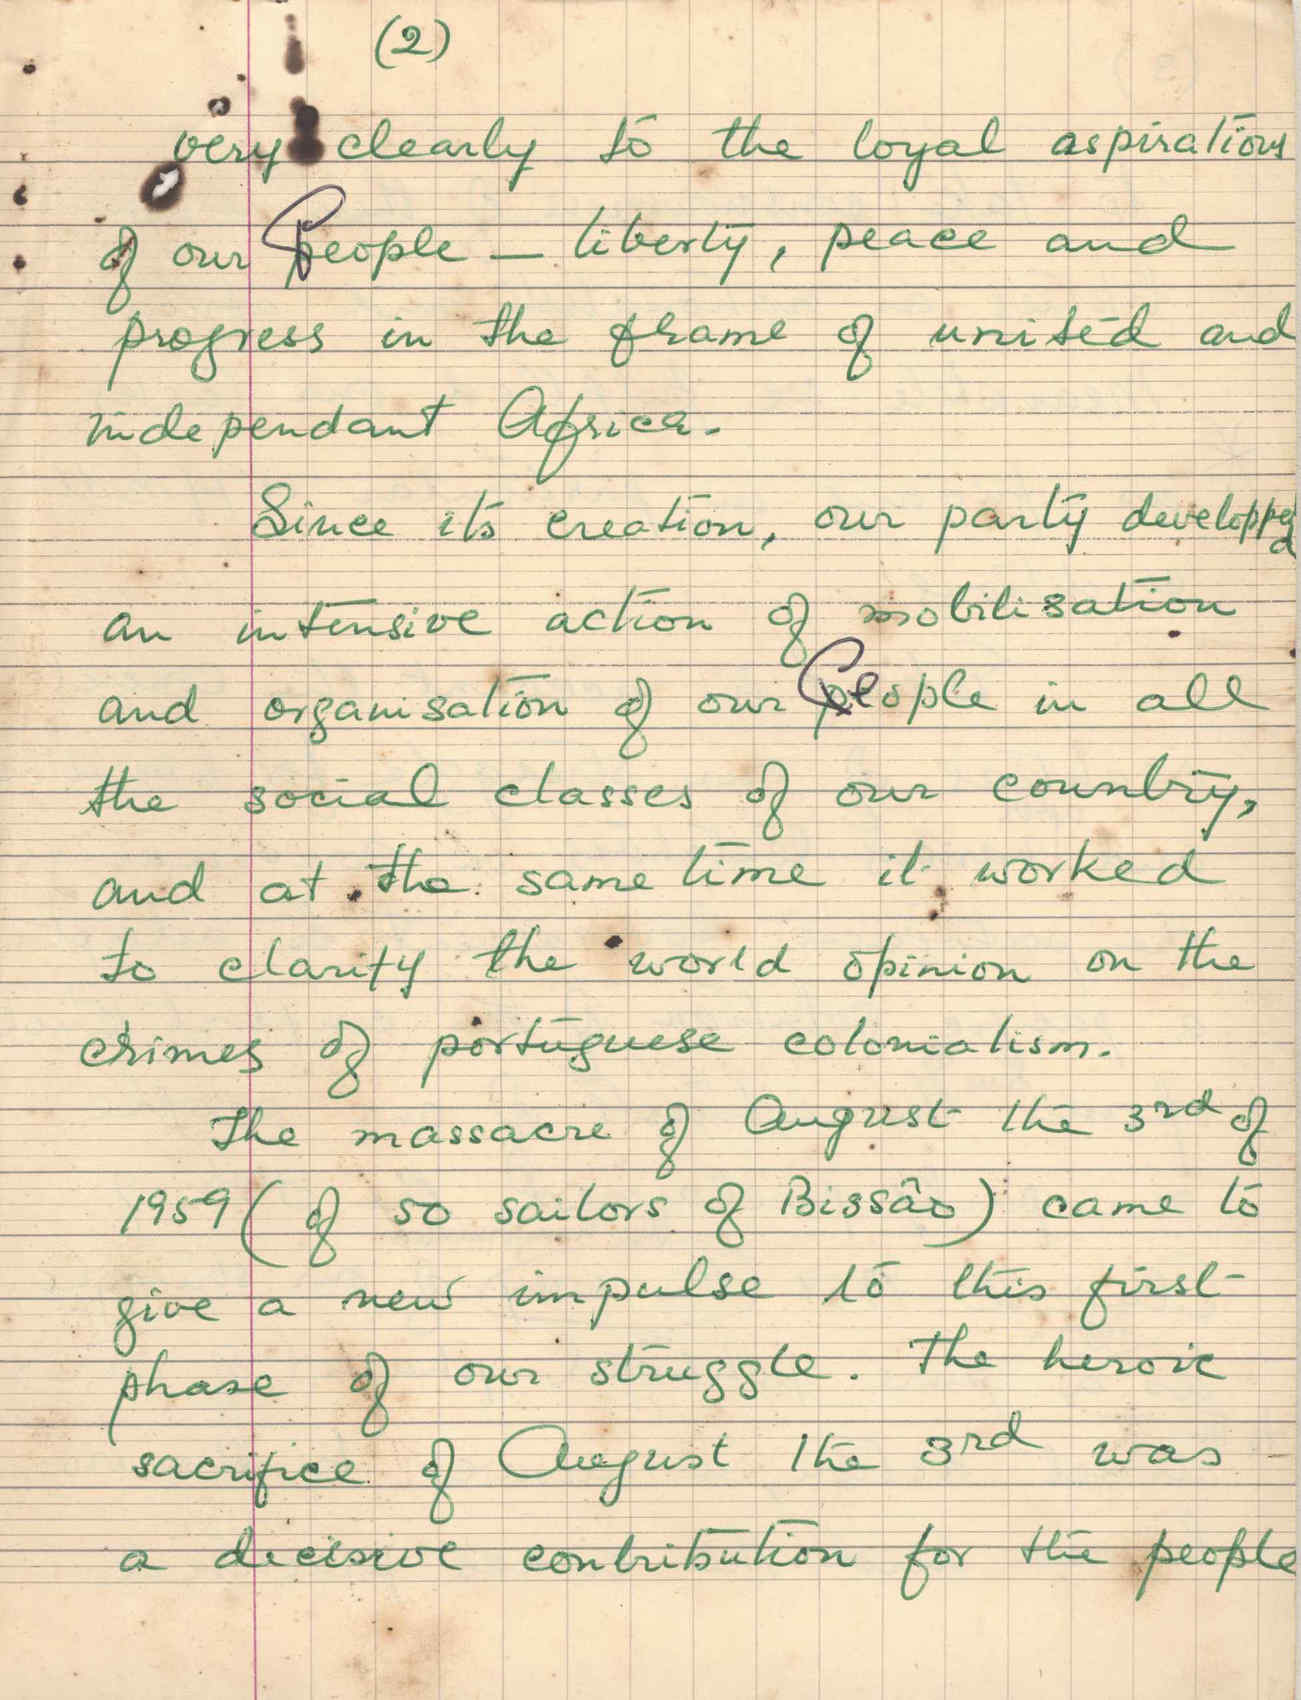 (2)
very clearly to the loyal aspirations
of our People — liberty, peace and
progress in the frame of united and
independant Africa.
Since its creation, our party developped
an intensive action of mobilisation
and organisation of our People in all
the social classes of our country,
and at the same time it worked
to clarify the world opinion on the
crimes of portuguese colonialism.
The massacre of August the 3rd of
1959 (of 50 sailors of Bissão) came to
give a new impulse to this first
phase of our struggle. The heroic
sacrifice of August the 3rd was
a decisive contribution for the people